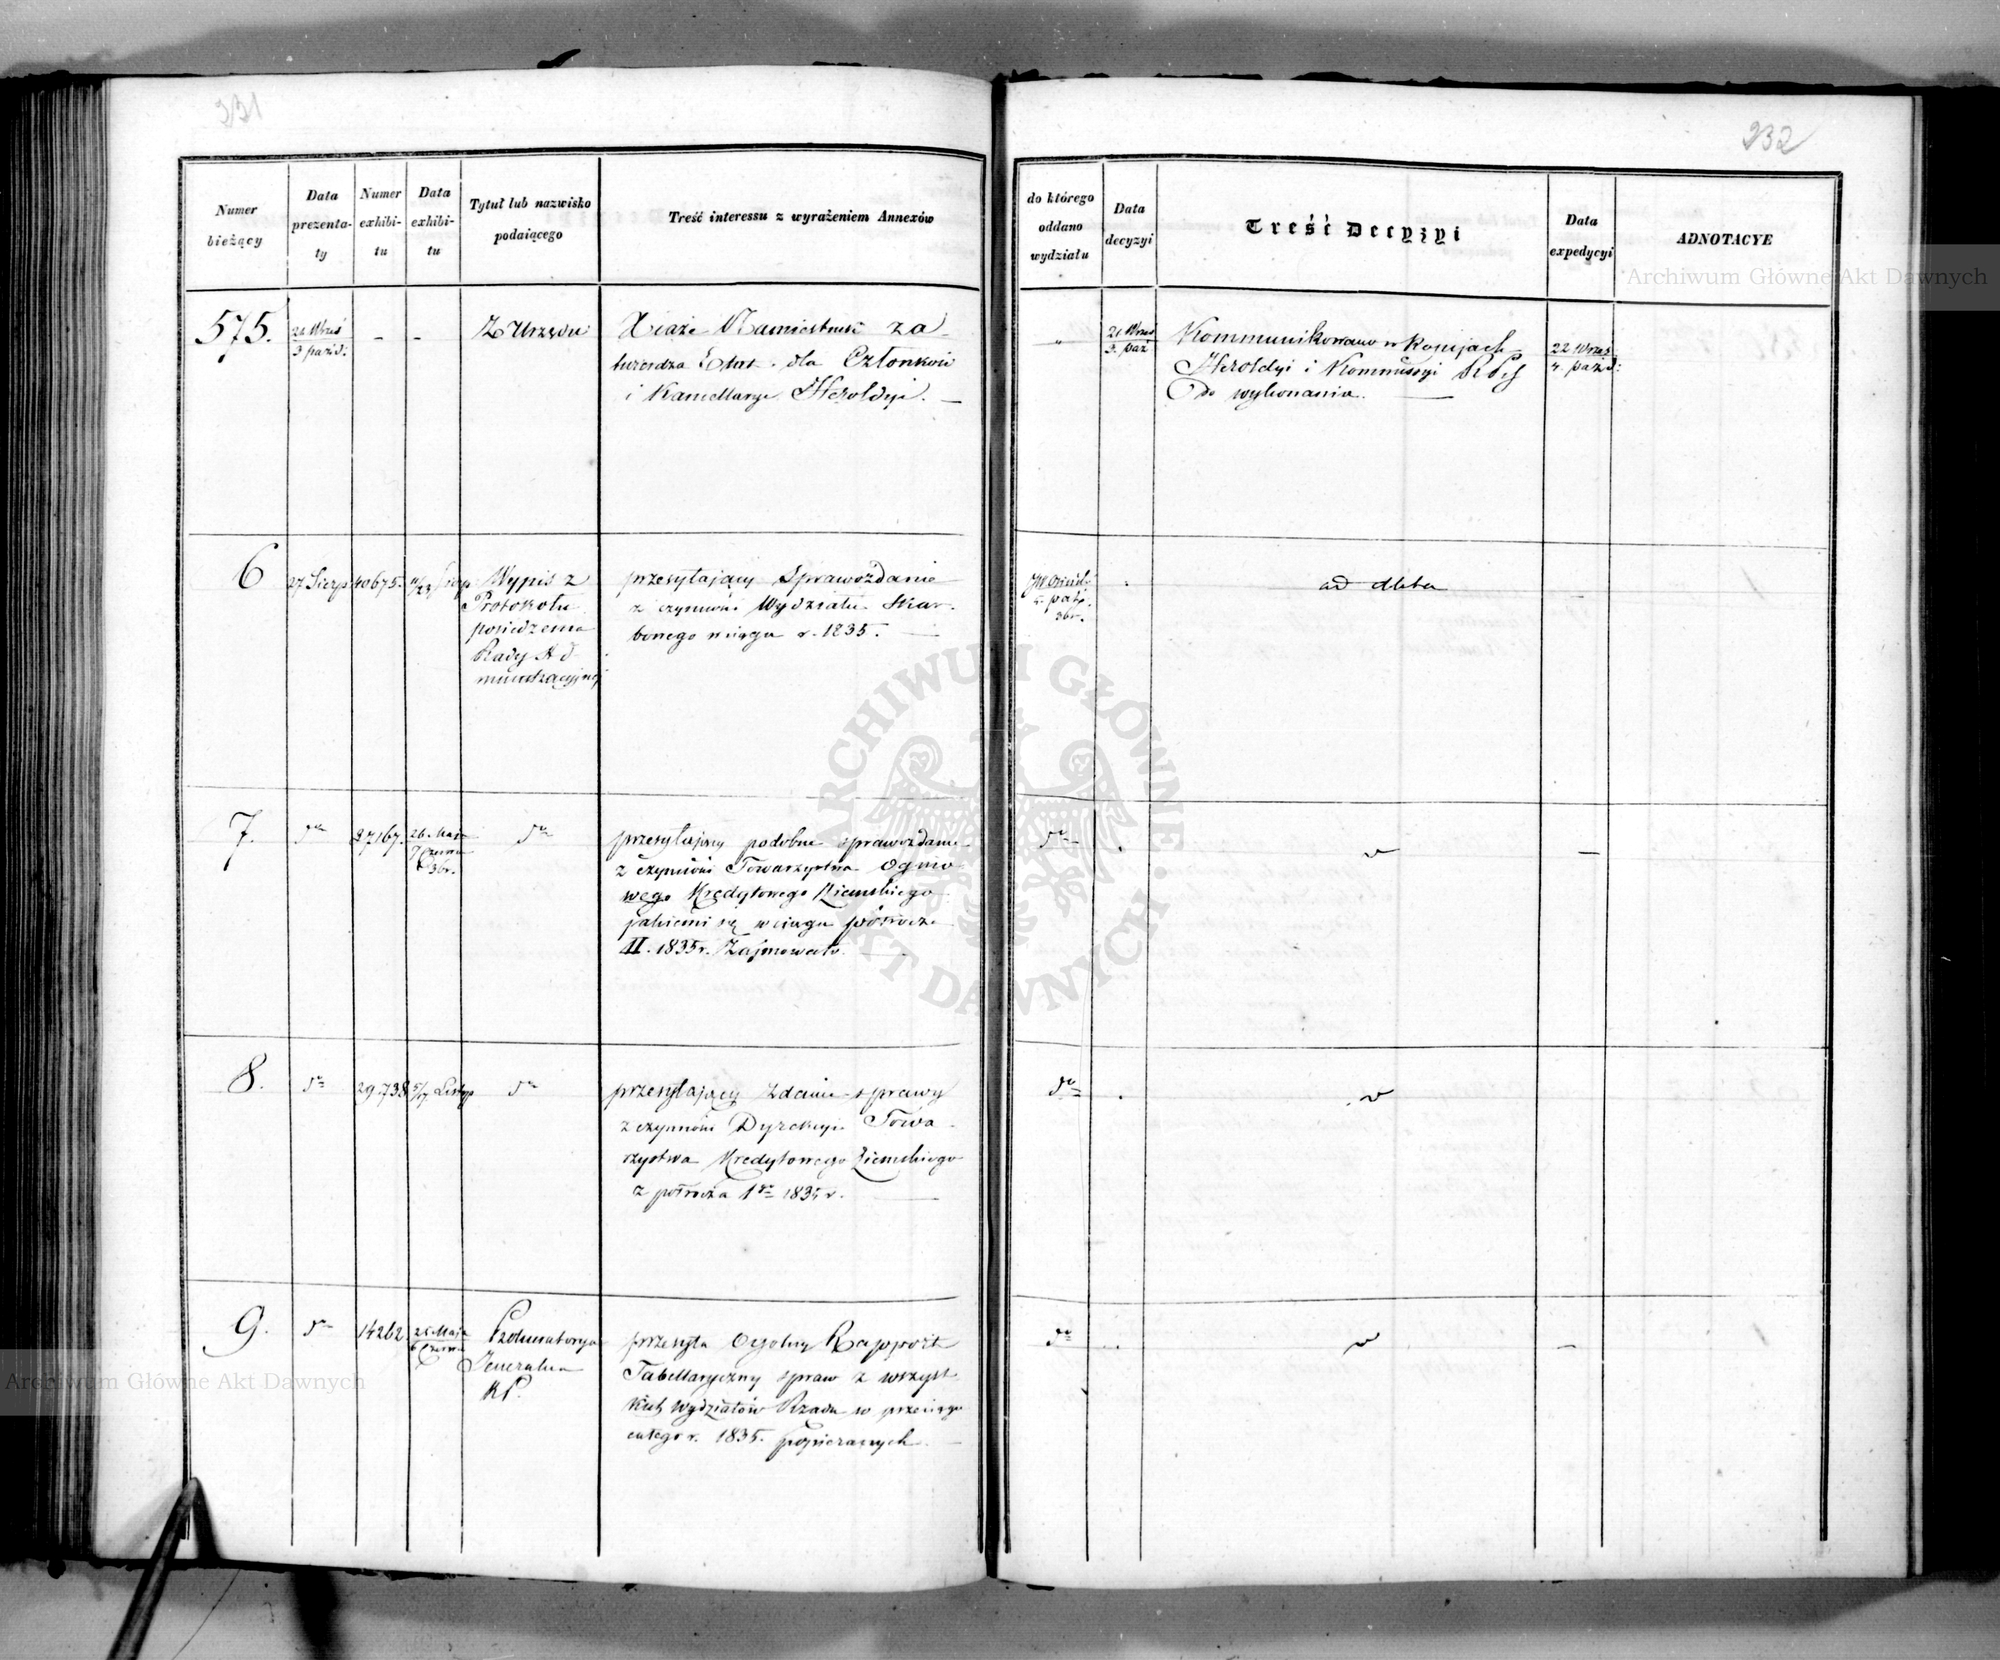 231
Numer
bieżący
Data
prezenta-
ty
Numer
exhibi-
tu
Data
exhibi-
tu
Tytuł lub nazwisko
podaiącego
Treść interessu z wyrażeniem Annexów
575.
21 Wrześ
3 paźd:
-
-
Z Urzędu
Xiąże Namiestnik za
twierdza Etat dla Członków
i Kancellaryi Heroldyi. —
6
27 Sierp
40675.
11/23 Sierp
Wypis z
Protokołu
posiedzenia
Rady Ad
ministracyjnej
przesyłający Sprawozdanie
z czynności Wydziału Skar-
bowego w ciągu r. 1835. —
7.
do
37167.
26 Maja
7 Czerwca
36r.
do
przesyłający podobne sprawozdanie
z czynności Towarzystwa Ognio
wego Kredytowego Ziemskiego
jakiemi się w ciągu półrocza
II. 1835 r. Zajmowało. —
8.
do
29.738
5/17 Listop
do
przesyłający Zdanie sprawy
z czynności Dyrekcyi Towa-
rzystwa Kredytowego Ziemskiego
z półrocza 1go 1835 r. —
9.
do
14262
25 Maja
6 Czerwca
Prokuratorya
Jeneralna
KP.
przesyła Ogólny Rapport
Tabellaryczny spraw z wszyst
kich Wydziałów Rządu w przeciągu
całego r. 1835. popieranych —
232
do którego
oddano
wydziału
Data
decyzyi
Treść Decyzyi
Data
expedycyi
ADNOTACYE
"
21 Wrześ
3. paź
Kommunikowano w Kopijach
Heroldyi i Kommissyi
do wykonania. —
22 Wrześ
4. paźd:
36r.
ad acta
do
do
do
Archiwum Główne Akt Dawnych
Archiwum Główne Akt Dawnych
ARCHIWUM GŁÓWNE AKT DAWNYCH